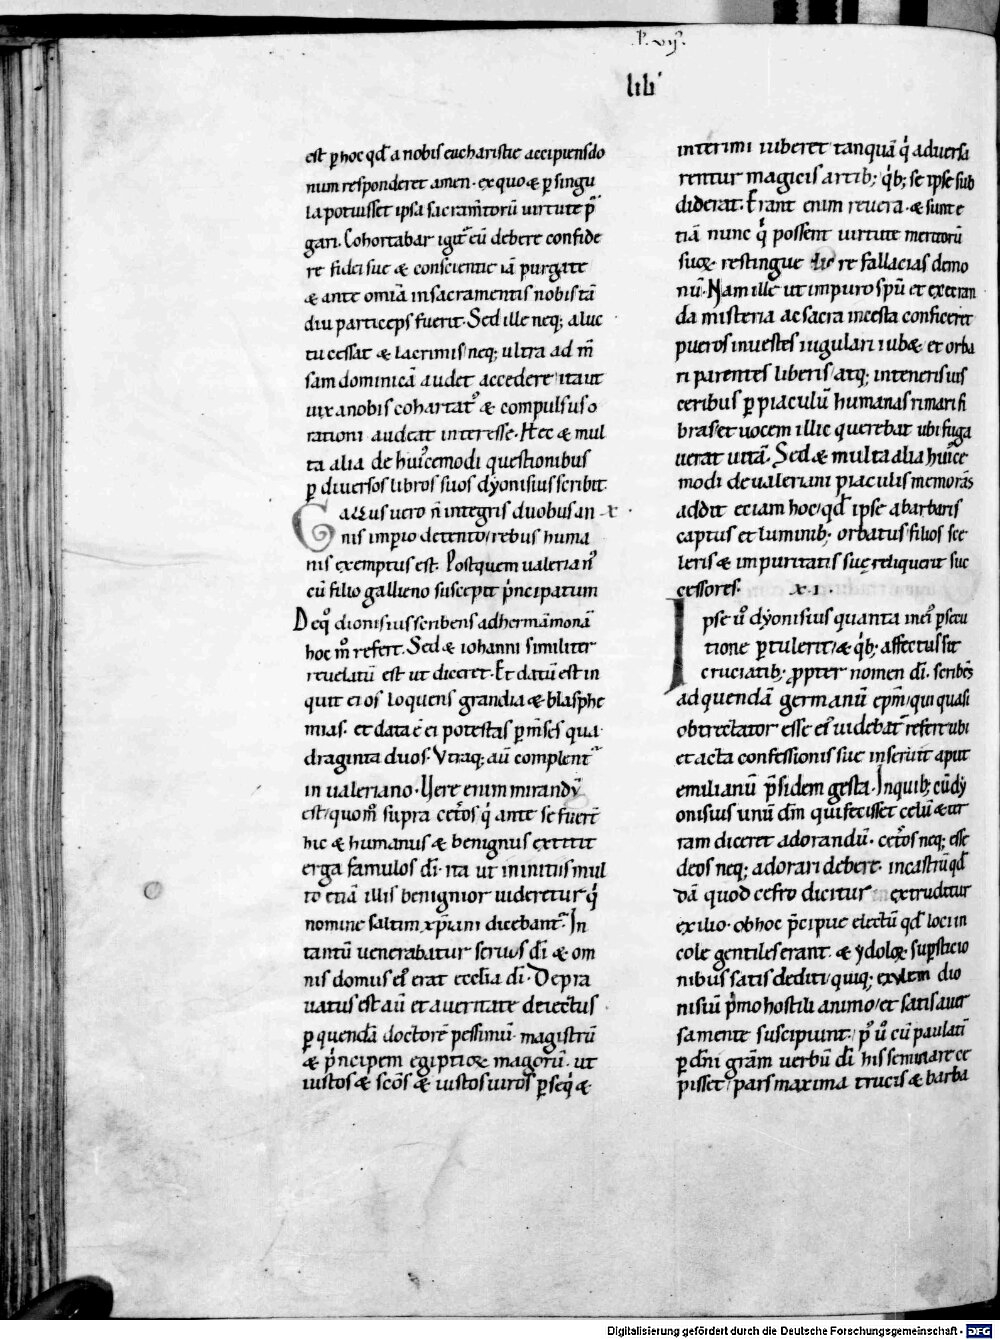 .P. vij.
lib'
est ꝑ hoc qđ a nobis eucharistie accipiens do
num responderet amen · ex quo & ꝑ singu
la potuisset ipsa sacram̅torū uirtute p̅
gari. Cohortabar igit᷑ eū debere confide
re fidei sue & conscientie iā purgate
& ante omīa in sacramentis nobis tā
diu particeps fuerit · Sed ille neq; a luc
tu cessat & lacrimis neq; ultra ad m̅
sam dominicā audet accedere ita ut
uix a nobis cohortat᷒ & compulsus o
rationi audeat interesse · Hec & mul
ta alia de hui᷒cemodi questionibus
ꝑ diuersos libros suos dẏonisius scribit.
Gallus uero n̅ integris duobus an · x ·
nis imꝑio detento / rebus huma
nis exemptus est. Postquem ualerian᷒
cū filio gallieno suscepit pͥncipatum
De q᷒ dionisius scribens ad hermāmonā
hoc m᷒ refert. Sed & iohanni similiter
reuelatū est ut diceret · Et datū est in
quit ei os loquens grandia & blasphe
mias · et data ē ei potestas ꝑ m̅ses qua
draginta duos · Vtraq; aū complent᷑
in ualeriano · Uere enim mirandū
est / quom᷒ supra cet̅os qͥ ante se fuer̅t
hic & humanus & benignus extitit
erga famulos dī · ita ut in initiis mul
to etiā illis benignior uideretur qͥ
nomine saltim xp̅iani dicebant᷑ · In
tantū uenerabatur seruos dī & om
nis domus ei᷒ erat ecclia dī · Depra
uatus est aū et a ueritate deiectus
ꝑ quendā doctorē pessimū · magistrū
& pͥncipem egiptioꝝ magorū · ut
iustos & sc̅os & iustos uiros ꝑseq̅ &
interimi iuberet tanquā qͥ aduersa
rentur magicis artib; qͥb; se ipse sub
diderat · Erant enim reuera · & sunt e
tiā nunc qͥ possent uirtute meritorū
suoꝝ · restingue re fallacias demo
nū · Nam ille ut impuro sp̅u et execran
da misteria ac sacra incesta conficeret
pueros inuestes iugulari iub& et orba
ri parentes liberis / atq; inteneris uis
ceribus ꝑ piaculū humanas rimari fi
bras et uocem illic querebat ubi fuga
uerat uitā · Sed & multa alia hui᷒ce
modi de ualeriani piaculis memorās
addit eciam hoc / qđ ipse a barbaris
captus et luminib; orbatus / filios sce
leris & impuritatis suę reliquerit suc
cessores · x · i ·
Ipse u᷒ dẏonisius quanta in ei᷒ ꝑsecu
tione ꝑtulerit / & qͥb; affectus sit
cruciatib; ꝓpter nomen dī · scribēs
ad quendā germanū ep̅m / qui quasi
obtrectator esse ei᷒ uidebat᷑ refert ubi
et acta confessionis sue inseruit aput
emilianū p̅sidem gesta · Inquib; cū dẏ
onisius unū dm̅ qui fecisset celū & ter
ram diceret adorandū · cet̅os neq; esse
deos neq; adorari debere · in castrū qđ
dā quod cefro dicitur extruditur
exilio · ob hoc p̅cipue electū qđ loci in
cole gentiles erant · & ẏdoloꝝ suꝑsticio
nibus satis dediti / quiq; exulem dio
nisiū pͥmo hostili animo / et satis auer
sa mente suscipiunt · p᷒ u᷒ cū paulatī
ꝑ dn̅i grām uerbū dī his seminare ce
pisset / pars maxima trucis & barba
Digitalisierung gefördert durch die Deutsche Forschungsgemeinschaft · DFG